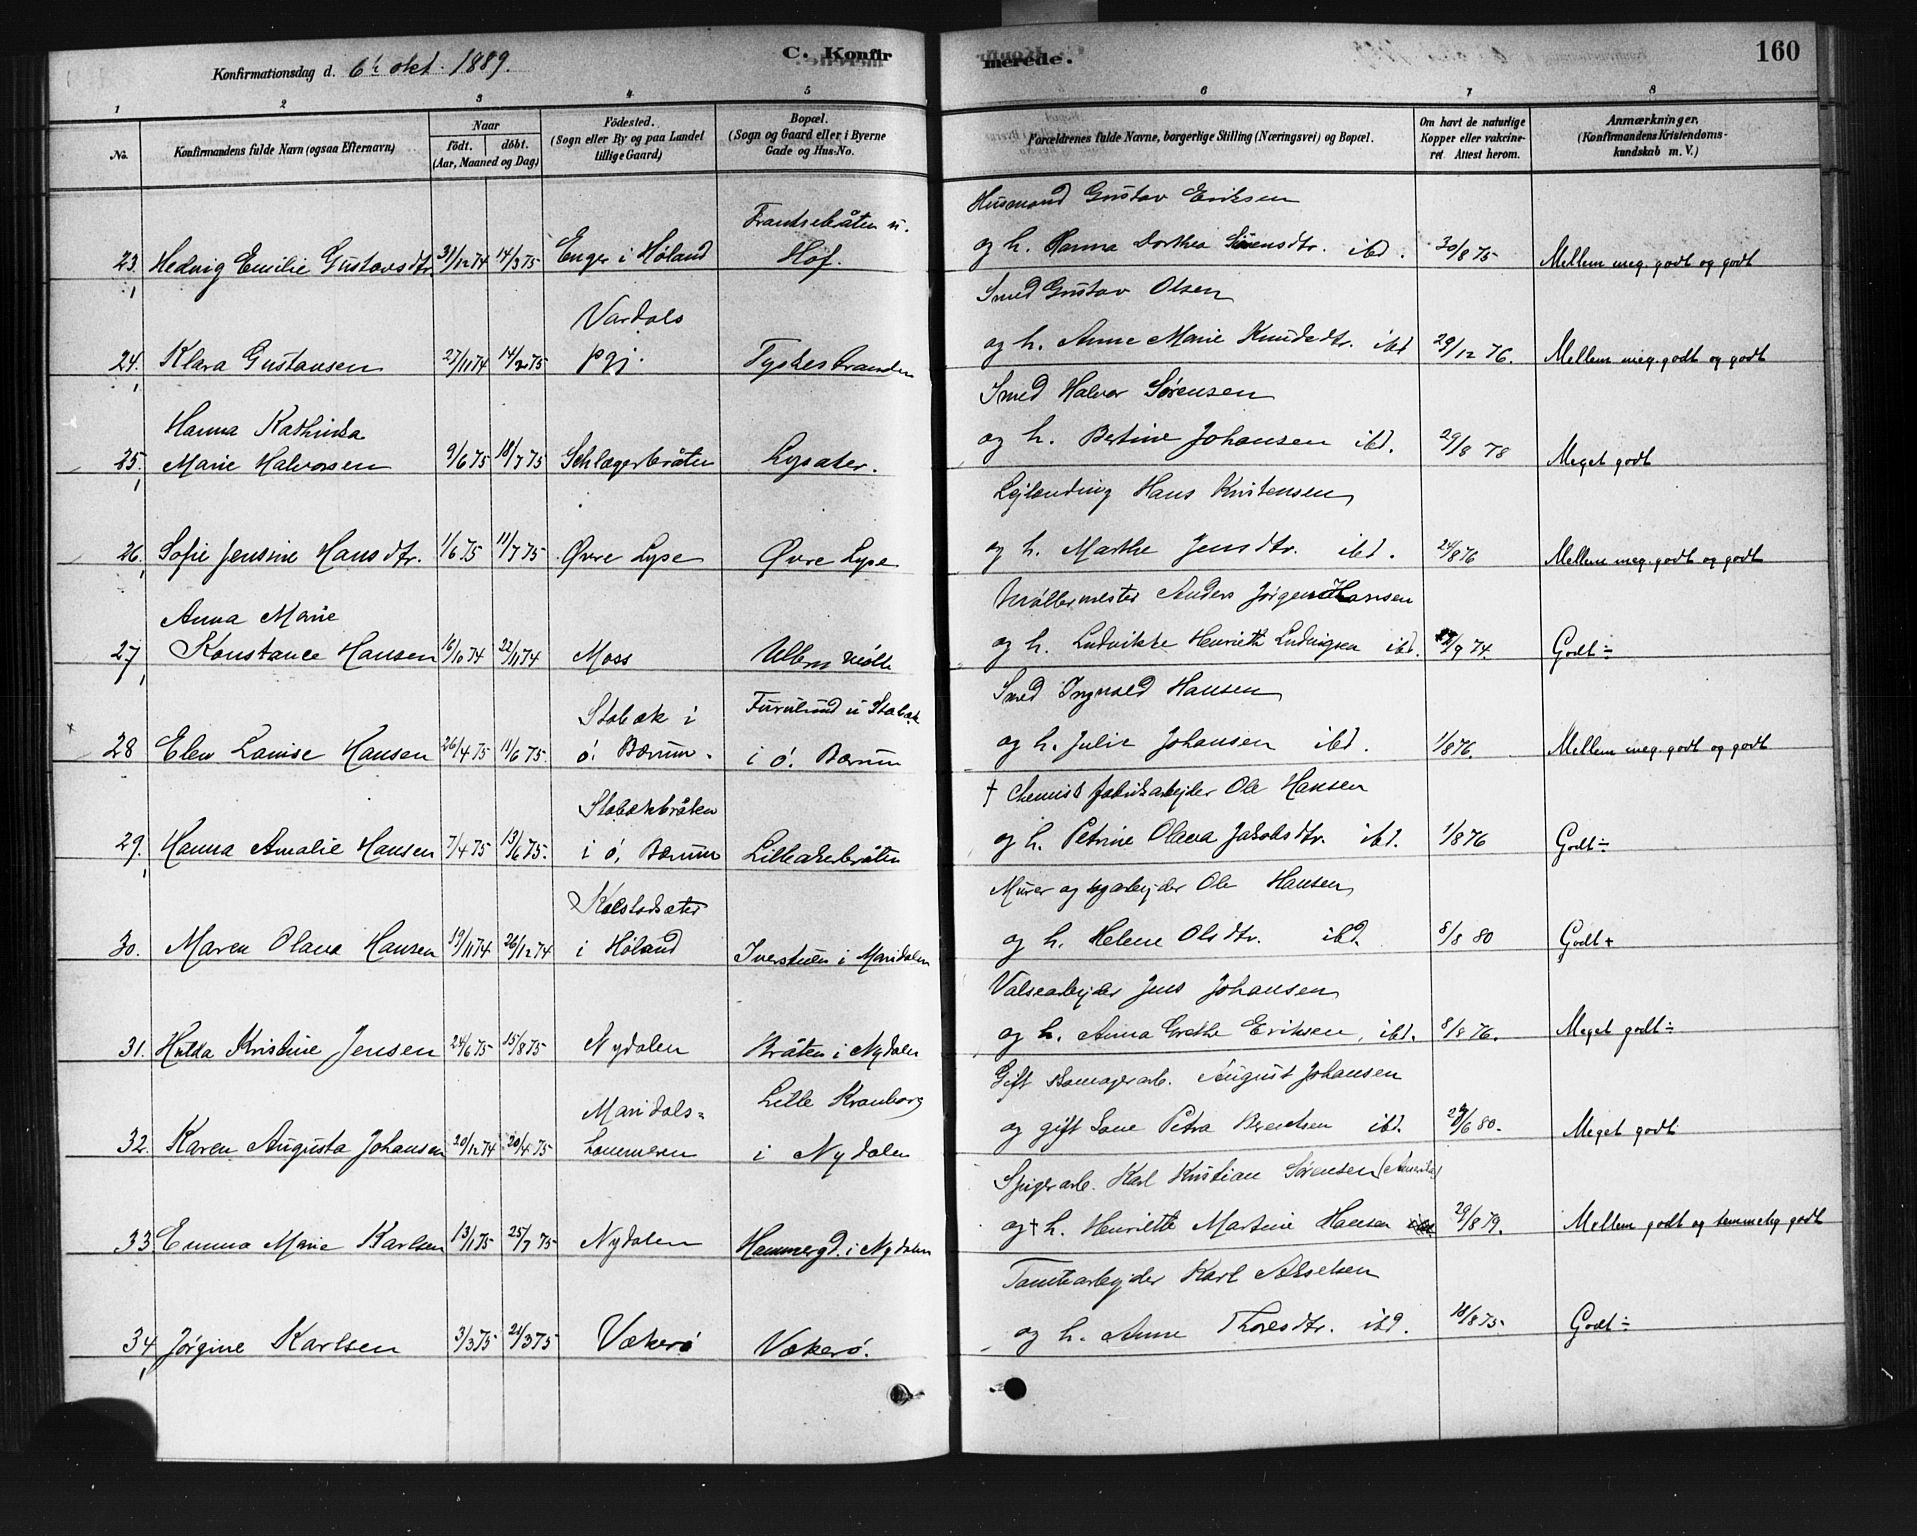 C. Konfir
merede.
160
Konfirmationsdag d. 6te okt. 1889.
1 2 3 4 5 6 7 8
No.
Konfirmandens fulde Navn (ogsaa Efternavn)
Naar
födt. döbt.
(Aar, Maaned og Dag)
Födested.
(Sogn eller By og paa Landet
tillige Gaard)
Bopæl.
(Sogn og Gaard eller i Byerne
Gade og Hus-No.
Forældrenes fulde Navne, borgerlige Stilling (Næringsvei) og Bopæl.
Om havt de naturlige
Kopper eller vakcine-
ret Attest herom.
Anmærkninger.
(Konfirmandens Kristendoms-
kundskab m. V.)
Frantsebråten u. Husmand Gustav Eriksen
23. Hedvig Emilie Gustavsdtr. 31/12 74 14/3 75 Enger i Høland Hof. og h. Hanna Dorthea Sørensdtr. ibd. 30/8 75 Mellem meg. godt og godt
Vardals Smed Gustav Olsen
24. Klara Gustavsen 27/11 74 14/2 75 pgj. Tyskestranden og h. Anne Marie Knudsdtr. ibd 29/12 76. Mellem meg. godt og godt
Hanna Kathinka Smed Halvor Sørensen
25. Marie Halvorsen 9/6 75 18/7 75 Schlægerbråten Lysaker. og h. Bertine Johansen ibd. 29/8 78 Meget godt
Lejlending Hans Kristensen
26. Sofie Jensine Hansdtr. 1/6 75 11/7 75 Øvre Lyse Øvre Lyse og h. Marthe Jensdtr. ibd. 24/8 76 Mellem meg. godt og godt
Anna Marie Møllermester Anders Jørgen Hansen
27. Konstance Hansen 16/10 74 22/11 74 Moss Ullern Mølle og h. Ludvikke Henriette Ludvigsen ibd. /9 74. Godt ÷
Stabæk i Furulund u Stabæk Smed Ingvald Hansen
28 Elen Lovise Hansen 26/4 75 11/6 75 ö. Bærum. i ö. Bærum og h. Julie Johansen ibd. 1/8 76. Mellem meg. godt og godt
Stabækbråten † Chemisk fabrikarbejder Ole Hansen
29. Hanna Amalie Hansen 7/4 75 13/6 75. i ö, Bærum Lilleakerbråten og h. Petrine Olava Jakobsdtr. ibd. 1/8 76 Godt ÷
Murer og bygarbejder Ole Hansen
30. Maren Olava Hansen 19/11 74 26/12 74 i Høland Iverstuen i Maridalen og h. Helene Olsdtr. ibd. 8/8 80 Godt +
Valsearbejder Jens Johansen
31. Hulda Kristine Jensen 24/6 75 15/8 75 Nydalen Bråten i Nydalen og h. Anna Grethe Eriksen, ibd. 8/8 76. Meget godt ÷
Maridals= Lille Kranborg Gift August Johansen
32. Karen Augusta Johansen 20/12 74 20/4 75 hammeren i Nydalen og gift Lone Petra Berentsen ibd. /6 80. Meget godt
Spigerarb. Karl Kristian Sørensen (Amerika)
33 Emma Marie Karlsen 13/1 75 25/7 75 Nydalen Hammergd. i Nydalen og † h. Henriette Martine Hansen 29/8 79. Mellem godt og temmelig godt
Tomtearbejder Karl Akselsen
34. Jørgine Karlsen 3/3 75 21/3 75 Vækerö Vækerö. og h. Anne Thoresdtr. ibd. 18/8 75. Godt ÷